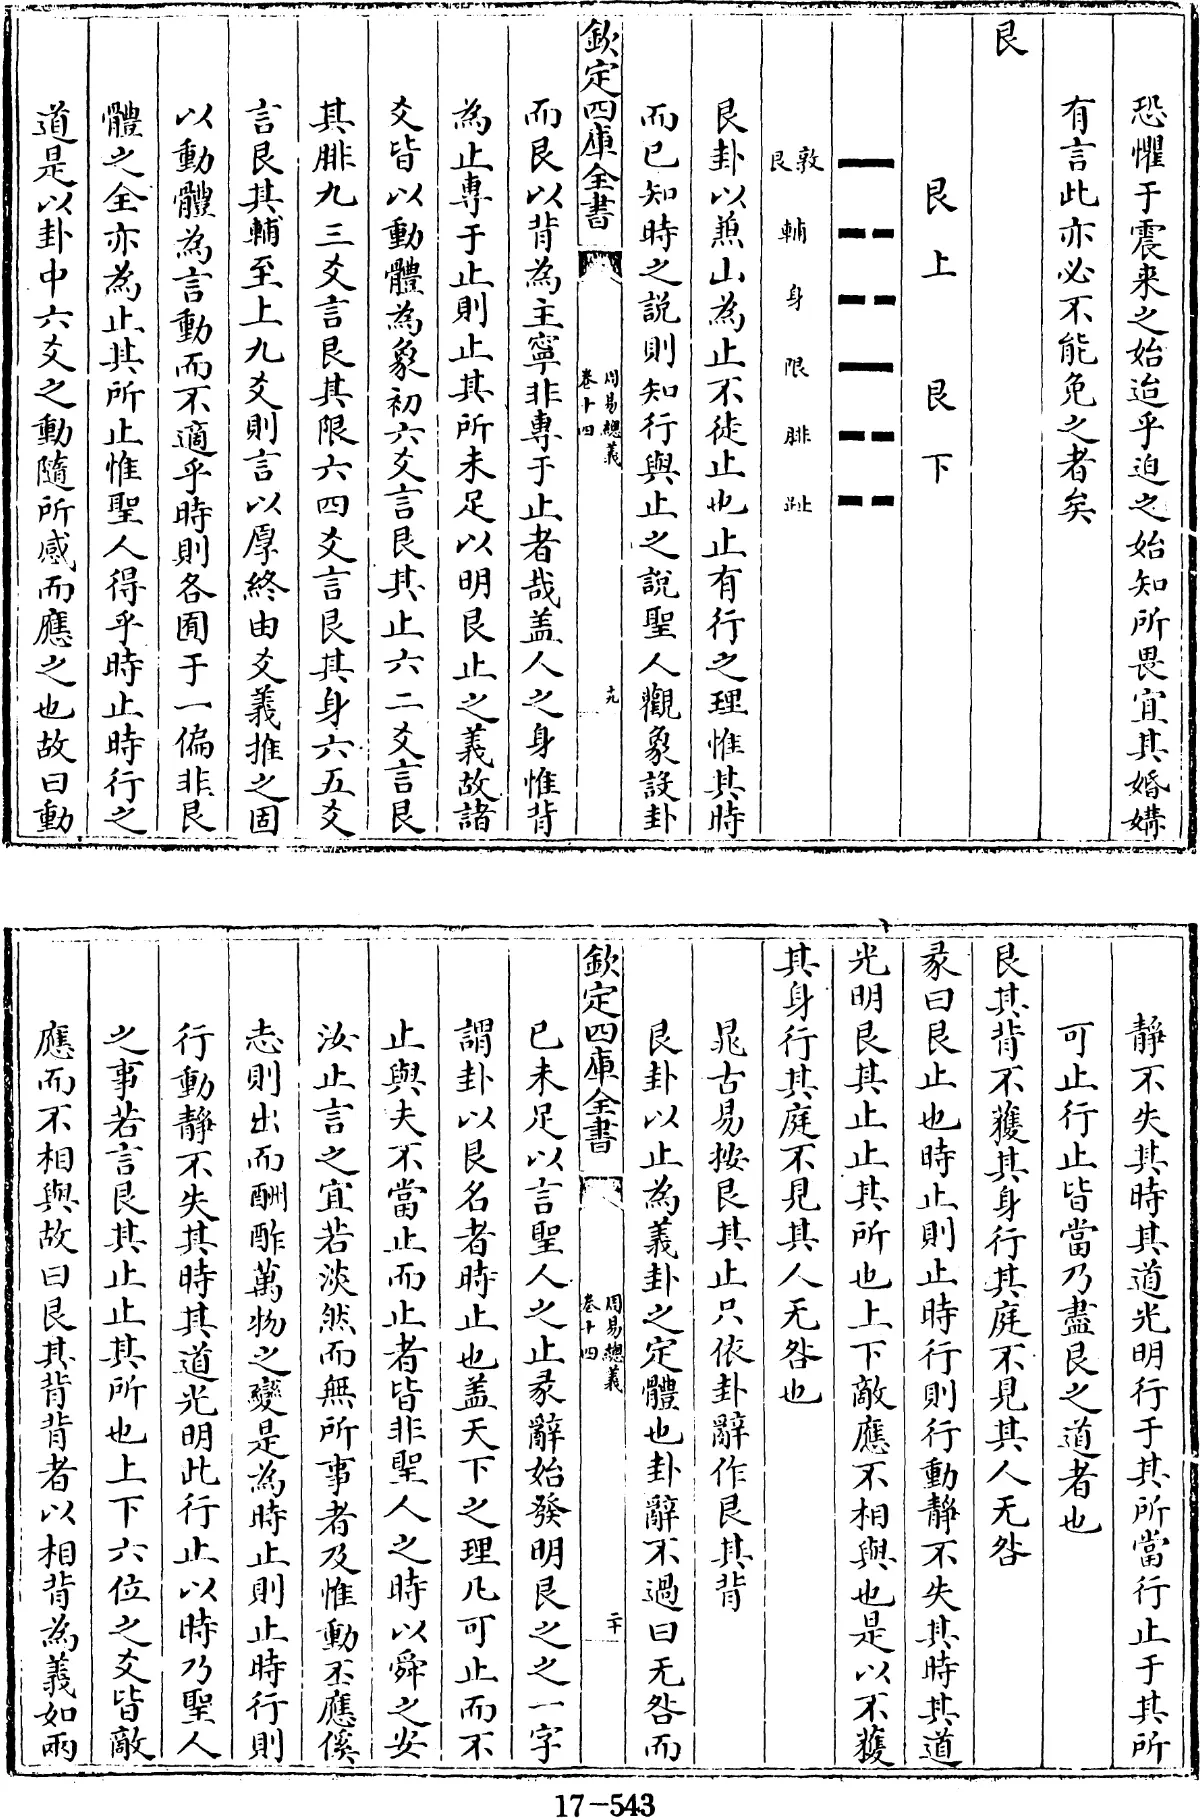 恐懼于震来之始迨乎迫之始知所畏宜其婚媾
有言此亦必不能免之者矣
艮
艮上　艮下
敦艮　輔　身　限　腓　趾
艮卦以兼山為止不徒止也止有行之理惟其時
而已知時之説則知行與止之説聖人觀象設卦
欽定四庫全書
周易總義
卷十四
十九
而艮以背為主寜非專于止者哉盖人之身惟背
為止專于止則止其所未足以明艮止之義故諸
爻皆以動體為象初六爻言艮其止六二爻言艮
其腓九三爻言艮其限六四爻言艮其身六五爻
言艮其輔至上九爻則言以厚終由爻義推之固
以動體為言動而不適乎時則各囿于一偏非艮
體之全亦為止其所止惟聖人得乎時止時行之
道是以卦中六爻之動隨所感而應之也故曰動
靜不失其時其道光明行于其所當行止于其所
可止行止皆當乃盡艮之道者也
艮其背不獲其身行其庭不見其人无咎
彖曰艮止也時止則止時行則行動靜不失其時其道
光明艮其止止其所也上下敵應不相與也是以不獲
其身行其庭不見其人无咎也
晁古易按艮其止只依卦辭作艮其背
艮卦以止為義卦之定體也卦辭不過曰无咎而
欽定四庫全書
周易總義
卷十四
二十
已未足以言聖人之止彖辭始發明艮之之一字
謂卦以艮名者時止也盖天下之理凡可止而不
止與夫不當止而止者皆非聖人之時以舜之安
汝止言之宜若淡然而無所事者及惟動丕應徯
志則出而酬酢萬物之變是為時止則止時行則
行動靜不失其時其道光明此行止以時乃聖人
之事若言艮其止止其所也上下六位之爻皆敵
應而不相與故曰艮其背背者以相背為義如兩
17-543